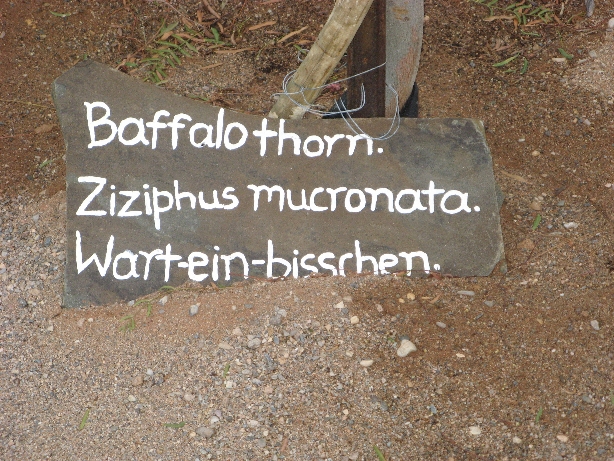 Baffalo thorn.
Ziziphus mucronata.
Wart-ein-bisschen.